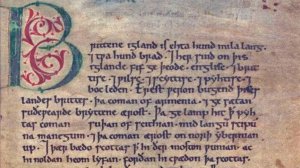 Brittene igland is ehta hund mila lang.
⁊ tƿa hund brad. ⁊ her sind on þis
iglande fif geþeode. englisc. ⁊ brit
tisc. ⁊ ƿilsc. ⁊ scyttisc. ⁊ pyhtisc. ⁊
boc leden. Erest ƿeron bugend þises
landes brittes. þa coman of armenia. ⁊ ge sætan
suðeƿearde bryttene ærost. Þa ge lamp hit þ pyh
tas coman suþan of scithian. mid langū scipū
na manegum. ⁊ þa coman ærost on norþ ybernian
up. ⁊ þer bædo scottas þ hi ðer moston ƿunian. ac
hi noldan heom lyfan. forðan hi cƿædon þa scottas.